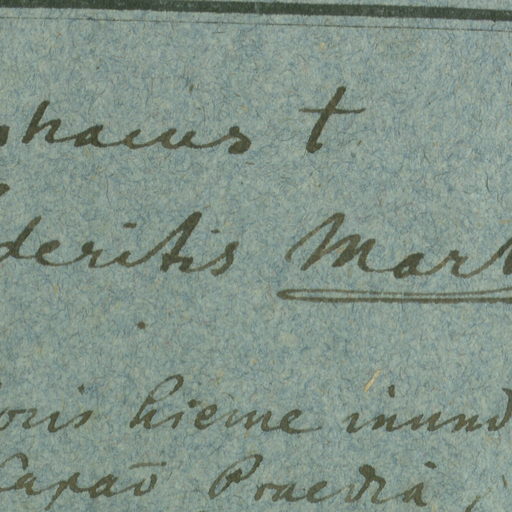 phaeus †
deritis Mart
oris hieme inund
Capaõ Praedia,